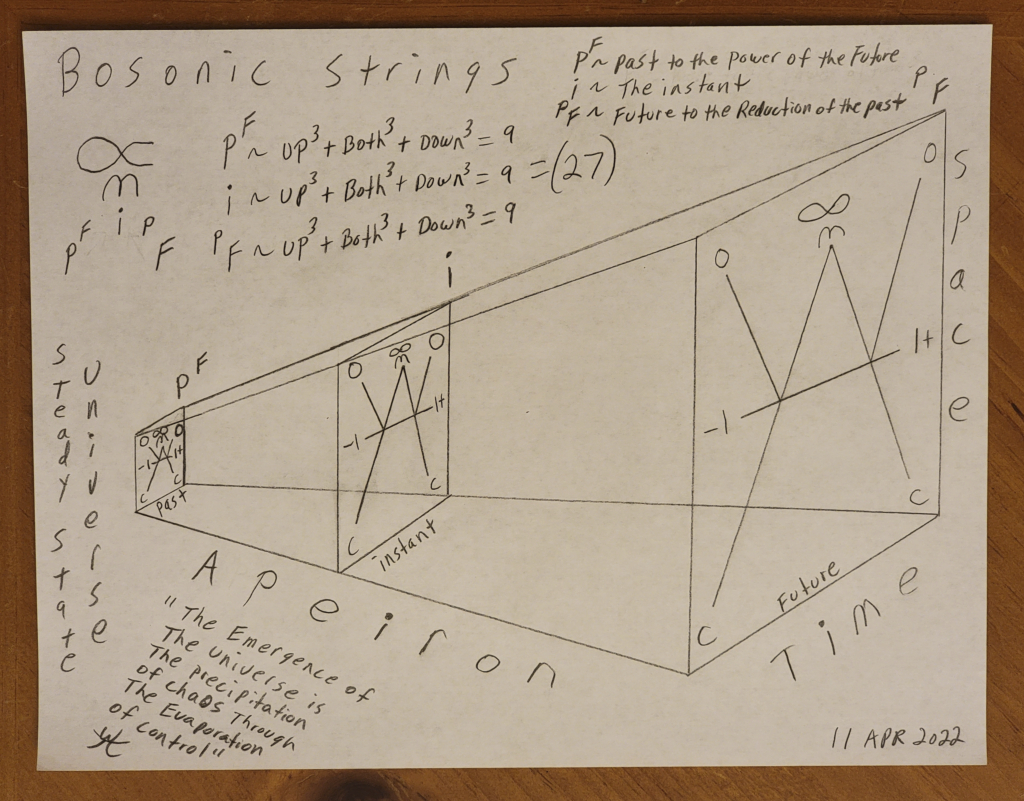 Bosonic Strings
P^F ~ Past to the Power of the Future
i ~ The instant
P_F ~ Future to the Reduction of the past
∝
m
P^F i P_F
P^F ~ UP³ + Both³ + Down³ = 9
i ~ UP³ + Both³ + Down³ = 9 = (27)
P_F ~ UP³ + Both³ + Down³ = 9
P_F
i
P^F
Space
Steady State
Universe
O ∞ O
m
-1 1+
C C
Past
O ∞ O
m
-1 1+
C C
instant
O ∞ O
m
-1 1+
C C
Future
Time
Apeiron
"The Emergence of
The Universe is
The precipitation
of chaos Through
The Evaporation
of control"
11 APR 2022